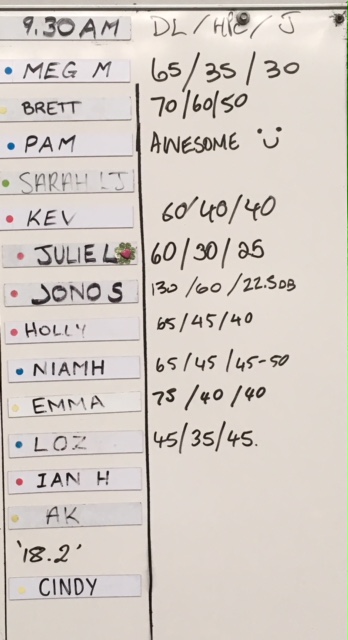 9.30AM DL/HPC/J
MEG M 65/35/30
BRETT 70/60/50
PAM AWESOME
SARAH LJ
KEV 60/40/40
JULIE L 60/30/25
JONO S 130/60/22.5DB
HOLLY 65/45/40
NIAMH 65/45/45-50
EMMA 75/40/40
LOZ 45/35/45.
IAN H
AK
'18.2'
CINDY